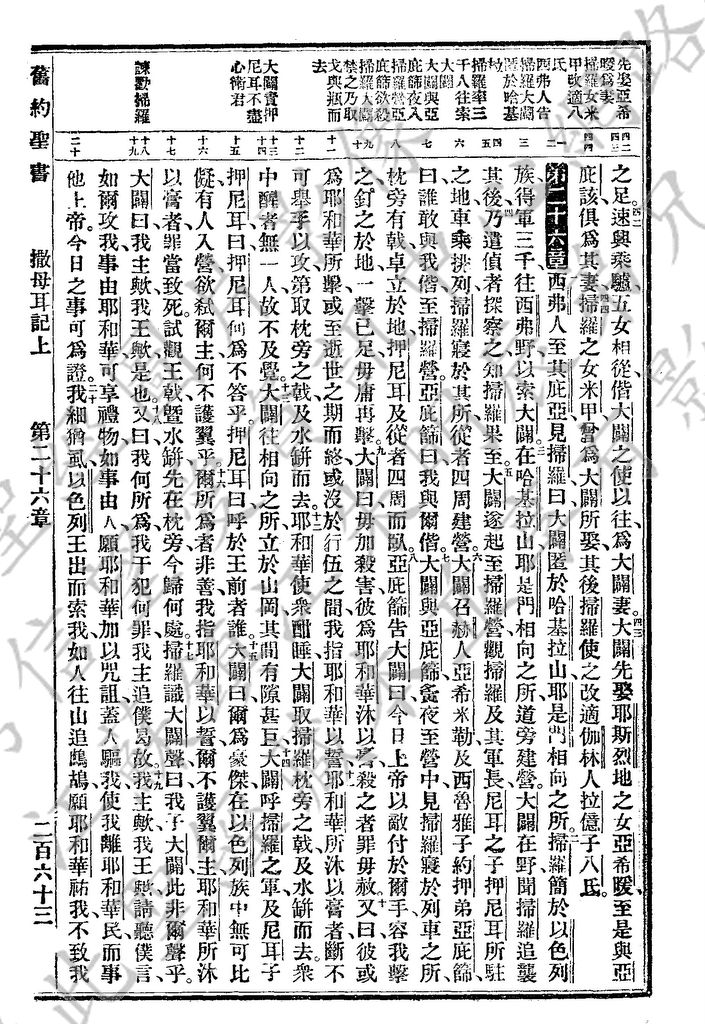 先娶亞希
暖爲妻
掃羅女米
甲改適八
氏
西弗人告
掃羅大闢
匿於哈基
拉
掃羅率三
千人往索
大闢
大闢與亞
庇篩夜入
掃羅營亞
庇篩欲殺
掃羅大闢
禁之乃取
戈與瓶而
去
大闢責押
尼耳不盡
心衛君
諫勸掃羅
四二
四三
四四
一
二
三
四
五
六
七
八
九
十
十一
十二
十三
十四
十五
十六
十七
十八
十九
二十
之足四二速興乘驢五女相從偕大闢之使以往爲大闢妻四三大闢先娶耶斯烈地之女亞希暖至是與亞
庇該俱爲其妻四四掃羅之女米甲嘗爲大闢所娶其後掃羅使之改適伽林人拉億子八氏
第二十六章西弗人至其庇亞見掃羅曰大闢匿於哈基拉山耶是門相向之所二掃羅簡於以色列
族得軍三千往西弗野以索大闢三在哈基拉山耶是門相向之所道旁建營大闢在野聞掃羅追襲
其後四乃遣偵者探察之知掃羅果至五大闢遂起至掃羅營觀掃羅及其軍長尼耳之子押尼耳所駐
之地車乘排列掃羅寢於其所從者四周建營六大闢召赫人亞希米勒及西魯雅子約押弟亞庇篩
曰誰敢與我偕至掃羅營亞庇篩曰我與爾偕七大闢與亞庇篩夤夜至營中見掃羅寢於列車之所
枕旁有戟卓立於地押尼耳及從者四周而臥八亞庇篩告大闢曰今日上帝以敵付於爾手容我擊
之釘之於地一擊已足毋庸再擊九大闢曰毋加殺害彼爲耶和華沐以膏殺之者罪毋赦十又曰彼或
爲耶和華所擊或至逝世之期而終或沒於行伍之間十一我指耶和華以誓耶和華所沐以膏者斷不
可舉手以攻第取枕旁之戟及水缾而去十二耶和華使衆酣睡大闢取掃羅枕旁之戟及水缾而去衆
中醒者無一人故不及覺十三大闢往相向之所立於山岡其間有隙甚巨十四大闢呼掃羅之軍及尼耳子
押尼耳曰押尼耳何爲不答乎押尼耳曰呼於王前者誰十五大闢曰爾爲豪傑在以色列族中無可比
儗有人入營欲弒爾主何不護翼乎十六爾所爲者非善我指耶和華以誓爾不護翼爾主耶和華所沐
以膏者罪當致死試觀王戟曁水缾先在枕旁今歸何處十七掃羅識大闢聲曰我子大闢此非爾聲乎
大闢曰我主歟我王歟是也十八又曰我何所爲我干犯何罪我主追僕曷故十九我主歟我王歟請聽僕言
如爾攻我事由耶和華可享禮物如事由人願耶和華加以咒詛蓋人驅我使我離耶和華民而事
他上帝今日之事可爲證二十我細猶虱以色列王出而索我如人往山追鷓鴣願耶和華祐我不致我
舊約聖書
撒母耳記上
第二十六章
二百六十三